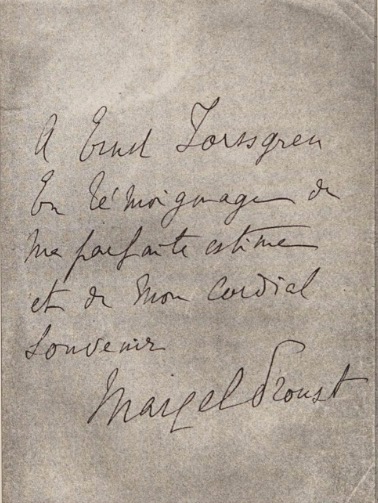 A Ernst Forssgren
En témoignage de
ma parfaite estime
et de mon cordial
souvenir
Marcel Proust